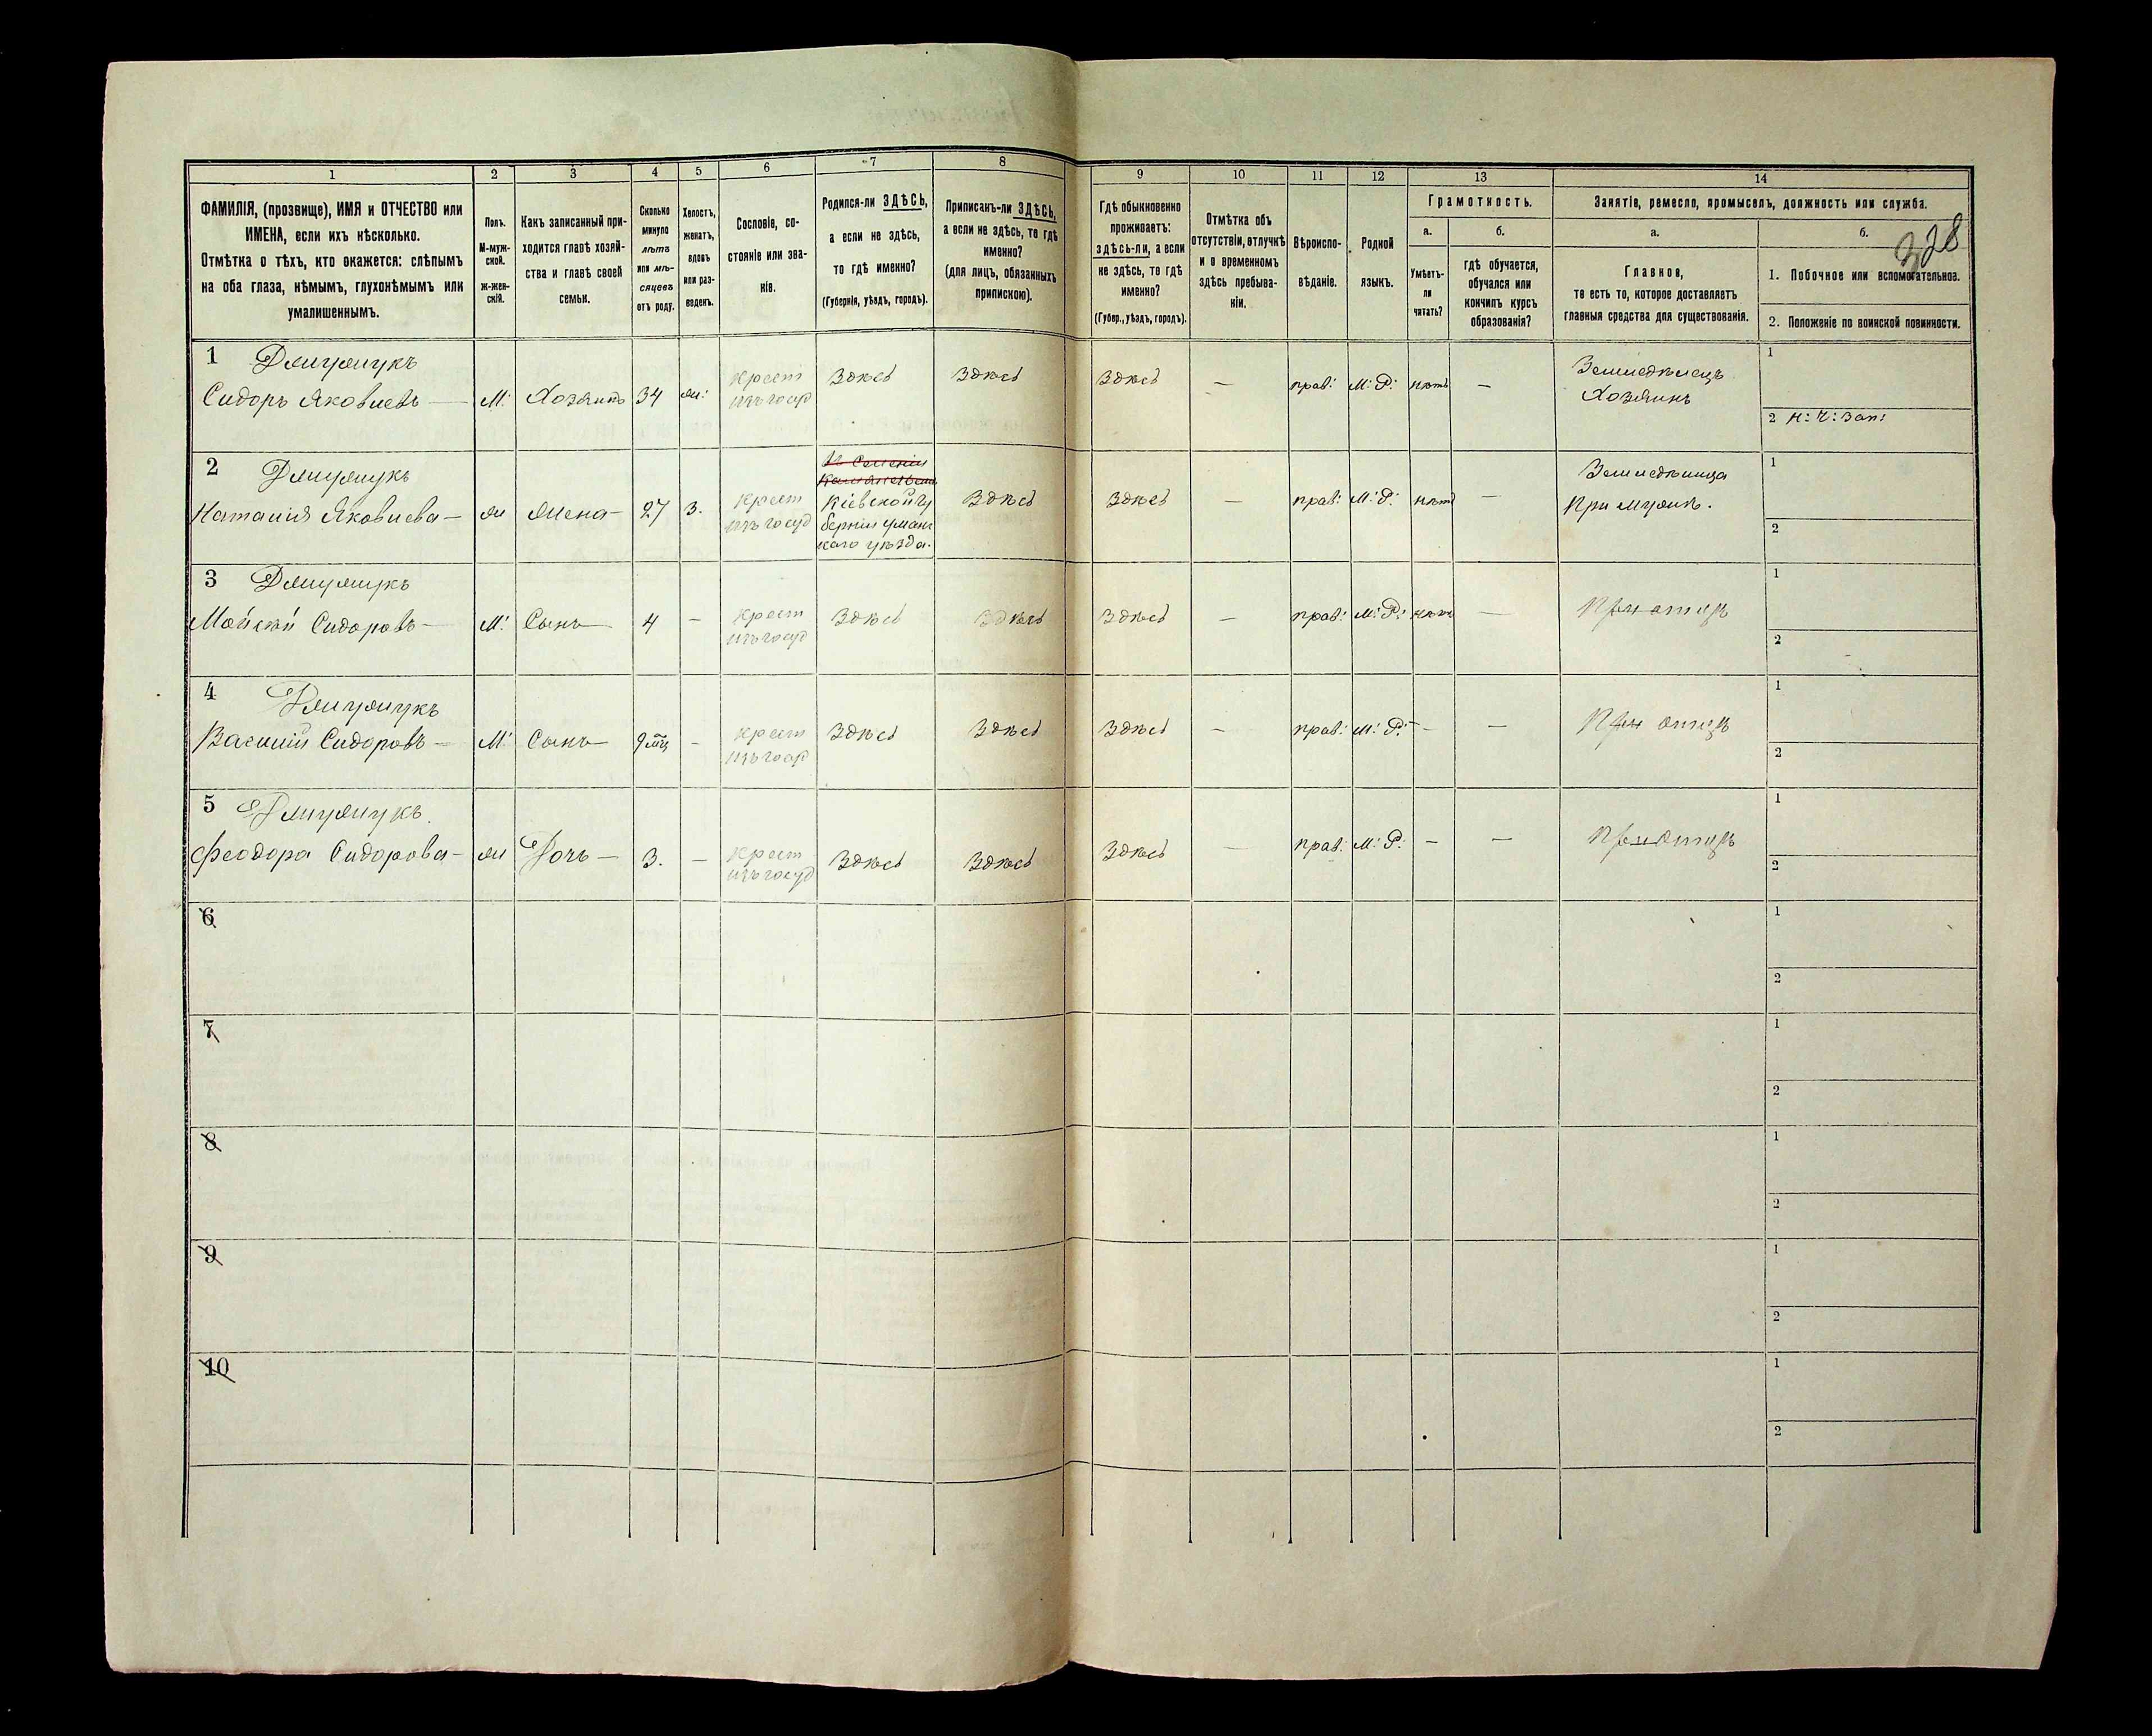 1 2 3 4 5 6 7 8 9 10 11 12 13 14
ФАМИЛІЯ, (прозвище), ИМЯ и ОТЧЕСТВО или
ИМЕНА, если ихъ нѣсколько.
Отмѣтка о тѣхъ, кто окажется: слѣпымъ
на оба глаза, нѣмымъ, глухонѣмымъ или
умалишеннымъ.
Полъ.
М-муж-
ской.
ж-жен-
скій.
Какъ записанный при-
ходится главѣ хозяй-
ства и главѣ своей
семьи.
Сколько
минуло
лѣтъ
или мѣ-
сяцевъ
отъ роду.
Холостъ,
женатъ,
вдовъ
или раз-
веденъ.
Сословіе, со-
стояніе или зва-
ніе.
Родился-ли ЗДѢСЬ,
а если не здѣсь,
то гдѣ именно?
(Губернія, уѣздъ, городъ).
Приписанъ-ли ЗДѢСЬ,
а если не здѣсь, то гдѣ
именно?
(для лицъ, обязанныхъ
припискою).
Гдѣ обыкновенно
проживаетъ:
здѣсь-ли, а если
не здѣсь, то гдѣ
именно?
(Губер., уѣздъ, городъ).
Отмѣтка объ
отсутствіи, отлучкѣ
и о временномъ
здѣсь пребыва-
ніи.
Вѣроиспо-
вѣданіе.
Родной
языкъ.
Грамотность.
а.
Умѣетъ-
ли
читать?
б.
гдѣ обучается,
обучался или
кончилъ курсъ
образованія?
Занятіе, ремесло, промыселъ, должность или служба.
а.
Главное,
то есть то, которое доставляетъ
главныя средства для существованія.
б.
328
1. Побочное или вспомогательное.
2. Положеніе по воинской повинности.
1
Сидоръ Яковлевъ — М: Хозяинъ 34 ж: Крест Здѣсь Здѣсь Здѣсь — прав: М: Р: нѣтъ — Земледѣлецъ
Хозяинъ
1
2 Н: Ч: Зап:
2
Наталія Яковлева — ж жена — 27 З. Крест
изъ госуд
Кіевской гу
берніи уман
каго уѣзда.
Здѣсь Здѣсь — прав: М: Р: нѣтъ —
При мужѣ.
1
2
3
Мойсей Сидоровъ — М: Сынъ — 4 — Крест
изъ госуд
Здѣсь Здѣсь Здѣсь — прав: М: Р: нѣтъ — При отцѣ
1
2
4
Василій Сидоровъ — М: Сынъ — 9 мц — Крест
Здѣсь Здѣсь Здѣсь — прав: М: Р: — — При отцѣ
1
2
5
Феодора Сидорова — ж Дочь — 3. — Крест
изъ госуд
Здѣсь Здѣсь Здѣсь — прав: М: Р. — — При отцѣ
1
2
6
1
2
7
1
2
8
1
2
9
1
2
10
1
2